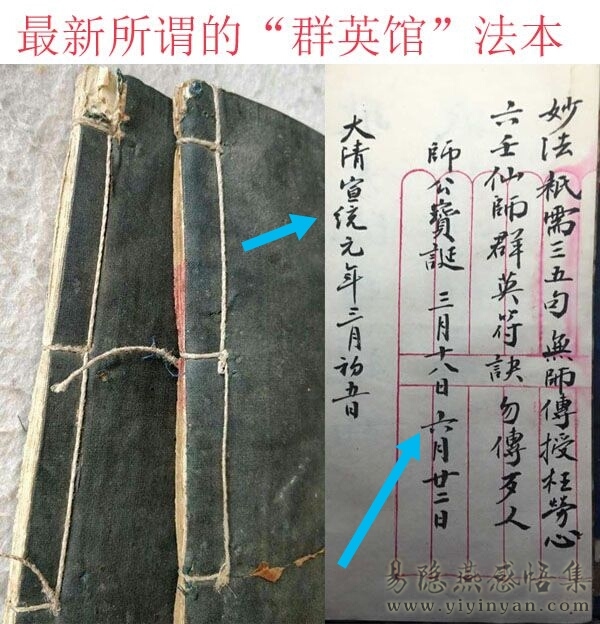 最新所谓的“群英馆”法本
妙法祇需三五句 無師傳授枉勞心
六壬仙師群英符訣 勿傳歹人
師公寶誕 三月十八日 六月廿二日
大清宣统元年三月初五日
易隐燕感悟集
www.yiyinyan.com